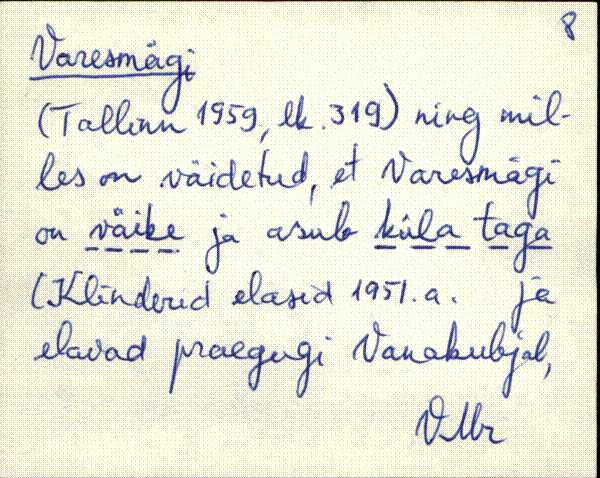 8
Varesmägi
(Tallinn 1959, lk. 319) ning mil-
les on väidetud, et Varesmägi
on väike ja asub küla taga
(Klinderid elasid 1951. a. ja
elavad praegugi Vanakubjal,
VMr